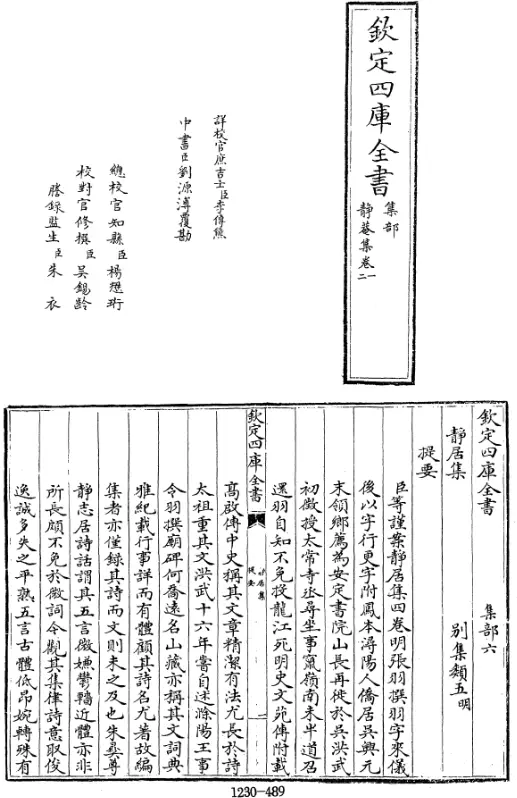 欽定四庫全書
集部
静菴集卷一二
詳校官庶吉士臣李傳熊
中書臣劉源溥覆勘
總校官知縣臣楊懋珩
校對官修撰臣吳錫齡
謄録監生臣朱衣
欽定四庫全書 集部六
静居集 别集類五明
提要
臣等謹案静居集四卷明張羽撰羽字來儀
後以字行更字附鳳本潯陽人僑居吳興元
末領鄉薦為安定書院山長再徙於吳洪武
初徵授太常寺丞尋坐事竄嶺南未半道召
還羽自知不免投龍江死明史文苑傳附載
欽定四庫全書
静居集
提要
一
高啟傳中史稱其文章精潔有法尤長於詩
太祖重其文洪武十六年嘗自述滁陽王事
令羽撰廟碑何喬遠名山藏亦稱其文詞典
雅紀載行事詳而有體顧其詩名尤著故編
集者亦僅録其詩而文則未之及也朱彝尊
静志居詩話謂其五言微嫌鬱轖近體亦非
所長頗不免於微詞今觀其集律詩意取俊
逸誠多失之平熟五言古體低昂婉轉殊有
1230-489